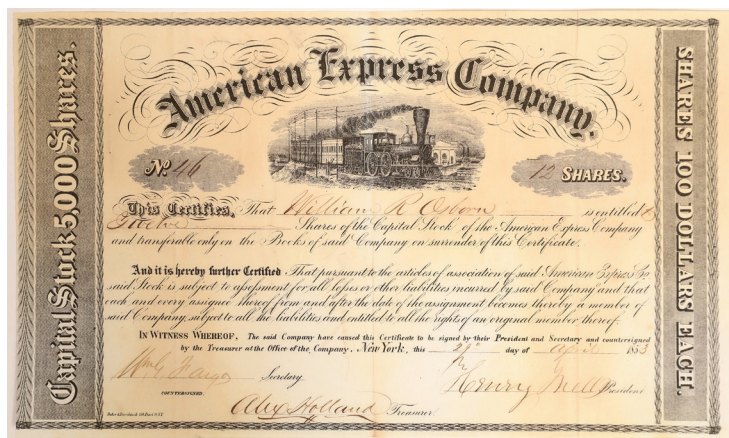 American Express Company.
Capital Stock 5,000 Shares.
SHARES 100 DOLLARS EACH.
No. 46
12 SHARES.
This Certifies, That William R Osborn is entitled to
Twelve Shares of the Capital Stock of the American Express Company
and transferable only on the Books of said Company on surrender of this Certificate.
And it is hereby further Certified That pursuant to the articles of association of said American Express Co.
said Stock is subject to assessment for all losses or other liabilities incurred by said Company and that
each and every assignee thereof from and after the date of the assignment becomes thereby a member of
said Company, subject to all the liabilities and entitled to all the rights of an original member thereof.
IN WITNESS WHEREOF, The said Company have caused this Certificate to be signed by their President and Secretary and countersigned
by the Treasurer at the Office of the Company, New York, this day of April 1853
Wm G Fargo Secretary
Henry Wells President
COUNTERSIGNED.
Alex Holland Treasurer